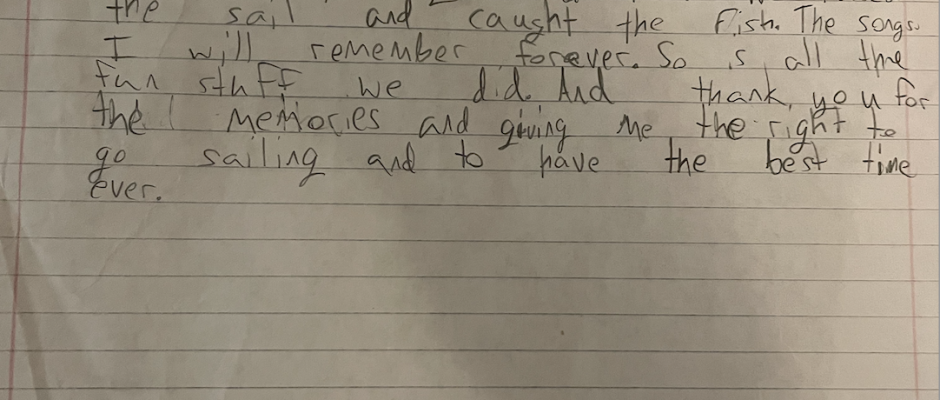 the sail and caught the fish. The songs.
I will remember forever. So is all the
fun stuff we did. And thank you for
the memories and giving me the right to
go sailing and to have the best time
ever.